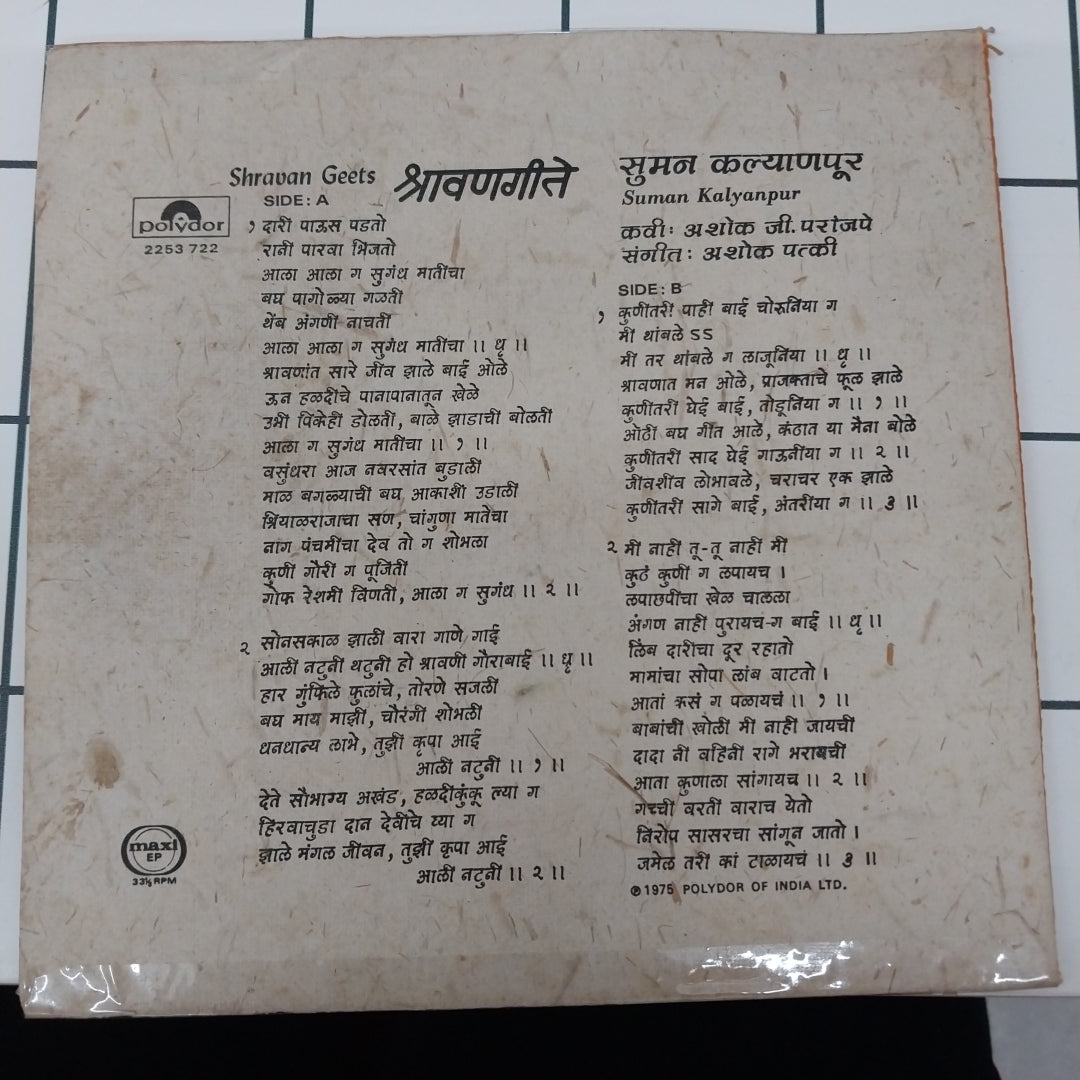 Shravan Geets श्रावणगीते
SIDE: A
polydor
2253 722
१ दारी पाऊस पडतो
रानी पारवा भिजतो
आला आला ग सुगंध मातीचा
बघ पागोळ्या गळती
थेंब अंगणी नाचती
आला आला ग सुगंध मातीचा ।। धृ ।।
श्रावणांत सारे जीव झाले बाई ओले
ऊन हळदीचे पानापानातून खेळे
उभी पिकेही डोलती, बाळे झाडाची बोलती
आला ग सुगंध मातीचा ।। १ ।।
वसुंधरा आज नवरसांत बुडाली
माळ बगळ्याची बघ आकाशी उडाली
श्रियाळराजाचा सण, चांगुणा मातेचा
नाग पंचमीचा देव तो ग शोभला
कुणी गौरी ग पूजिती
गोफ रेशमी विणती, आला ग सुगंध ।। २ ।।
२ सोनसकाळ झाली वारा गाणे गाई
आली नटुनी थटुनी हो श्रावणी गौराबाई ।। धृ ।।
हार गुंफिले फुलांचे, तोरणे सजली
बघ माय माझी, चौरंगी शोभली
धनधान्य लाभे, तुझी कृपा आई
आली नटुनी ।। १ ।।
देते सौभाग्य अखंड, हळदीकुंकू ल्या ग
हिरवाचुडा दान देवीचे घ्या ग
झाले मंगल जीवन, तुझी कृपा आई
आली नटुनी ।। २ ।।
maxi
EP
33⅓ RPM
सुमन कल्याणपूर
Suman Kalyanpur
कवी: अशोक जी. परांजपे
संगीत: अशोक पत्की
SIDE: B
१ कुणीतरी पाही बाई चोरूनिया ग
मी थांबले ऽऽ
मी तर थांबले ग लाजूनिया ।। धृ ।।
श्रावणात मन ओले, प्राजक्ताचे फूल झाले
कुणीतरी घेई बाई, तोडूनिया ग ।। १ ।।
ओठी बघ गीत आले, कंठात या मैना बोले
कुणीतरी साद घेई गाऊनीया ग ।। २ ।।
जीवशीव लोभावले, चराचर एक झाले
कुणीतरी सागे बाई, अंतरीया ग ।। ३ ।।
२ मी नाही तू-तू नाही मी
कुठं कुणी ग लपायच ।
लपाछपीचा खेळ चालला
अंगण नाही पुरायचं-ग बाई ।। धृ ।।
लिंब दारीचा दूर रहातो
मामांचा सोपा लांब वाटतो ।
आतां कसं ग पळायचं ।। १ ।।
बाबांची खोली मी नाही जायची
दादा नी वहिनी रागे भरायची
आता कुणाला सांगायच ।। २ ।।
गच्ची वरती वाराच येतो
निरोप सासरचा सांगून जातो ।
जमेल तरी कां टाळायचं ।। ३ ।।
℗ 1975 POLYDOR OF INDIA LTD.